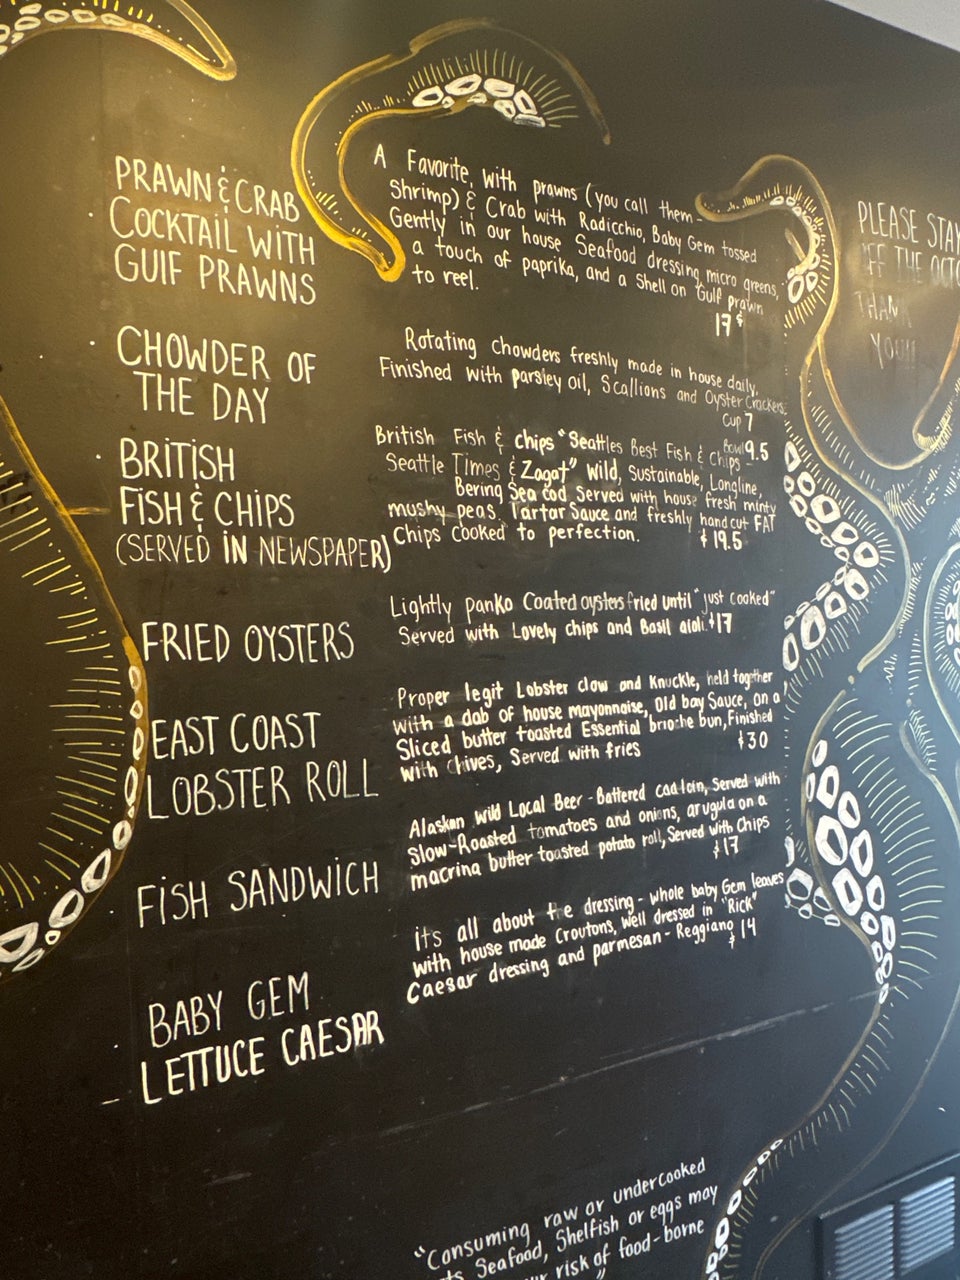 PRAWN & CRAB
COCKTAIL WITH
GUIF PRAWNS
A Favorite, with prawns (you call them
Shrimp) & Crab with Radicchio, Baby Gem tossed
Gently in our house Seafood dressing micro greens,
a touch of paprika, and a Shell on Gulf prawn
to reel.
17$
CHOWDER OF
THE DAY
Rotating chowders freshly made in house daily,
Finished with parsley oil, Scallions and Oyster Crackers.
Cup 7
Bowl 9.5
BRITISH
FISH & CHIPS
(SERVED IN NEWSPAPER)
British Fish & chips "Seattles Best Fish & Chips -
Seattle Times & Zagat" Wild, Sustainable, Longline,
Bering Sea cod Served with house fresh minty
mushy peas, Tartar Sauce and freshly hand cut FAT
Chips cooked to perfection.
$19.5
FRIED OYSTERS
Lightly panko Coated oysters fried until "just cooked"
Served with Lovely chips and Basil aioli. $17
EAST COAST
LOBSTER ROLL
Proper legit Lobster claw and Knuckle, held together
with a dab of house mayonnaise, Old bay Sauce, on a
Sliced butter toasted Essential brioche bun, Finished
with Chives, Served with fries
$30
FISH SANDWICH
Alaskan wild Local Beer - Battered cod loin, Served with
Slow-Roasted tomatoes and onions, arugula on a
macrina butter toasted potato roll, Served with Chips
$17
BABY GEM
LETTUCE CAESAR
it's all about the dressing - whole baby Gem leaves
with house made Croutons, well dressed in "Rick"
Caesar dressing and parmesan - Reggiano
$14
PLEASE STAY
OFF THE OCTO
THANK
YOU!!
"Consuming raw or undercooked
Seafood, Shelfish or eggs may
risk of food-borne